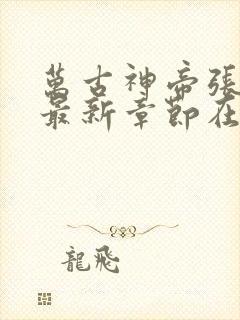 萬古神帝張
最新章節在
龍飛